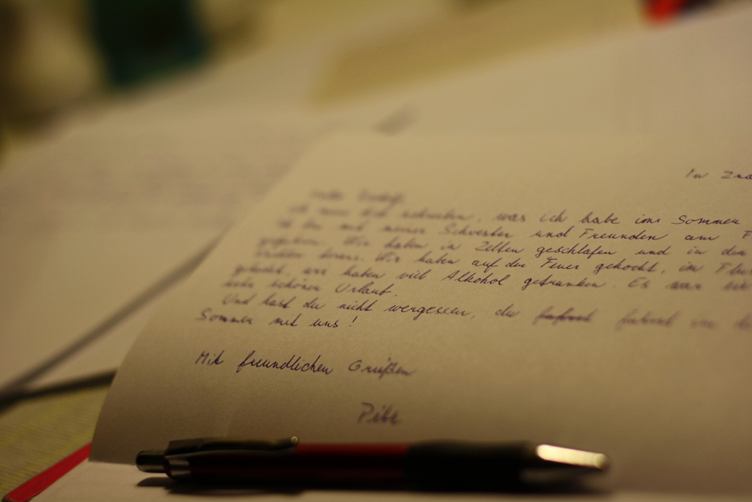 In Zna
schreiben, was ich habe im Sommer
mit meiner Schwester und Freunden am F
Wir haben in Zelten geschlafen und in den
Wir haben auf den Feuer gekocht, im Flu
wir haben viel Alkohol getrunken. Es war
schöner Urlaub.
Und hast du nicht vergessen, du fahrst fahrst
Sommer mit uns!
Mit freundlichen Grüßen
Petr